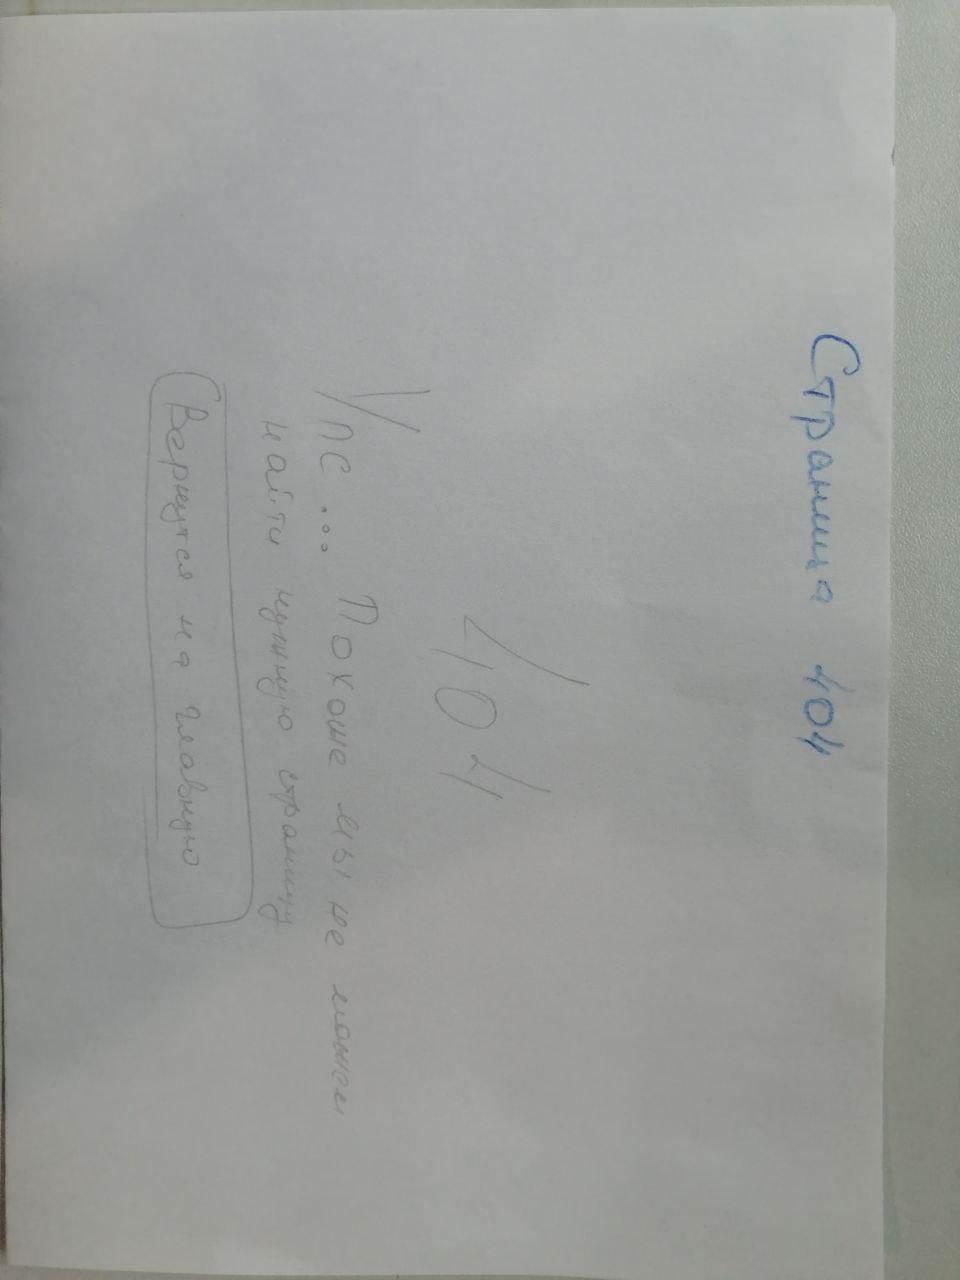 Страница 404
404
Упс... Похоже мы не можем
найти нужную страницу
Вернутся на главную